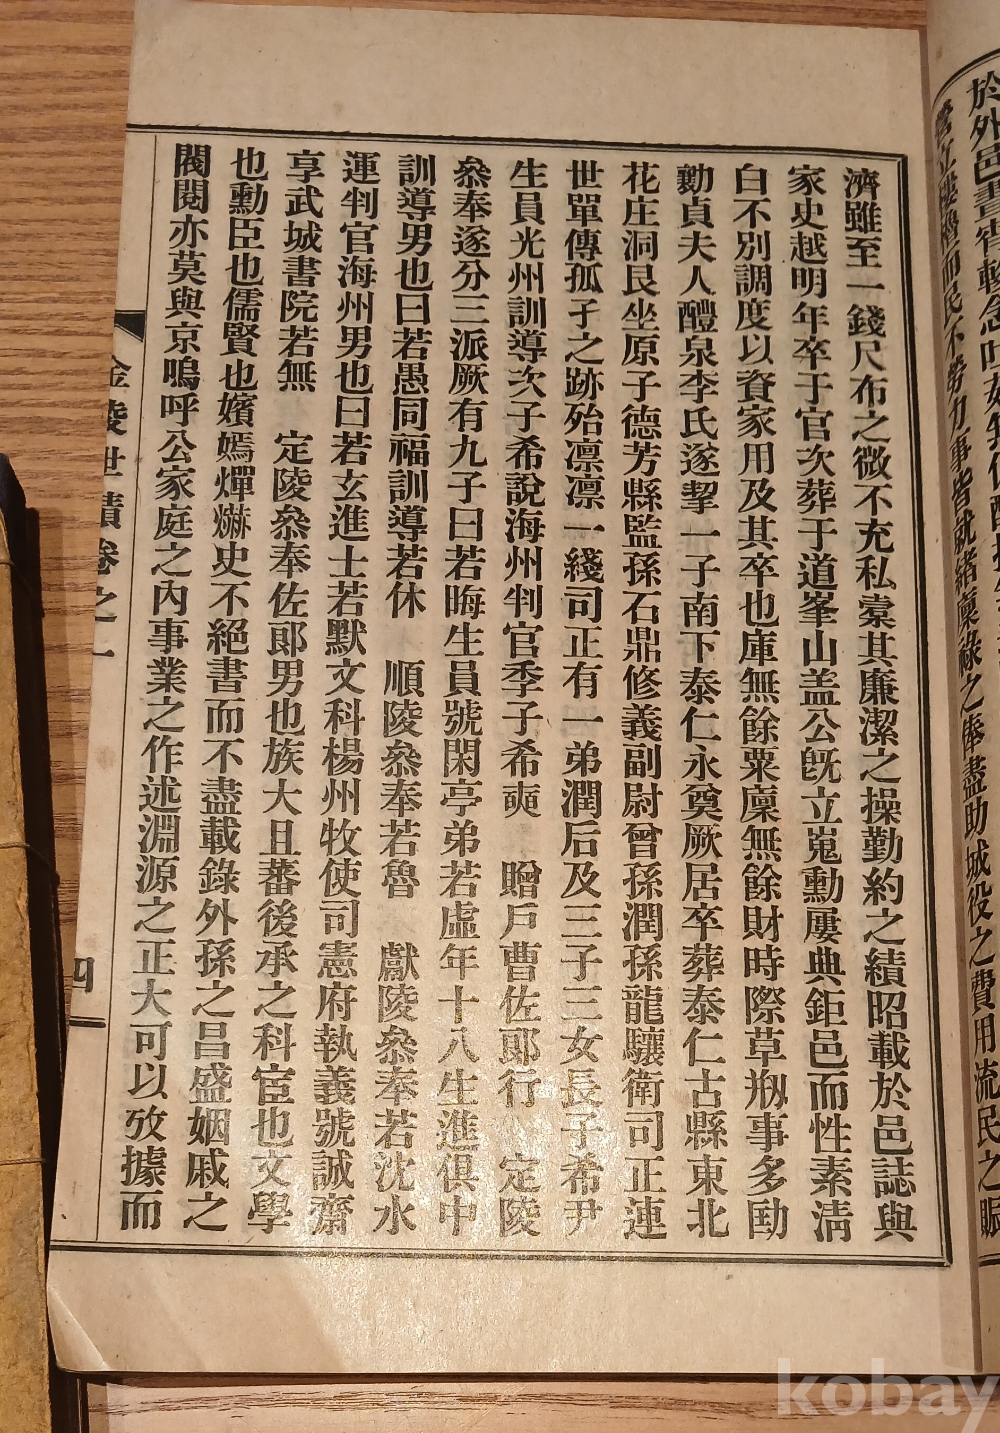 於外邑
濟雖至一錢尺布之微不充私橐其廉潔之操勤約之績昭載於邑誌與
家史越明年卒于官次葬于道峯山盖公旣立嵬勳屢典鉅邑而性素淸
白不別調度以資家用及其卒也庫無餘粟廩無餘財時際草刱事多
勷貞夫人醴泉李氏遂挈一子南下泰仁永奠厥居卒葬泰仁古縣東北
花庄洞艮坐原子德芳縣監孫石鼎修義副尉曾孫潤孫龍驤衛司正連
世單傳孤孑之跡殆凛凛一綫司正有一弟潤后及三子三女長子希尹
生員光州訓導次子希說海州判官季子希奭 贈戶曹佐郞行 定陵
叅奉遂分三派厥有九子曰若晦生員號閑亭弟若虛年十八生進俱中
訓導男也曰若愚同福訓導若休 順陵叅奉若魯 獻陵叅奉若沈水
運判官海州男也曰若玄進士若默文科楊州牧使司憲府執義號誠齋
享武城書院若無 定陵叅奉佐郞男也族大且蕃後承之科宦也文學
也勳臣也儒賢也嬪嫣燀爀史不絕書而不盡載錄外孫之昌盛姻戚之
閥閱亦莫與京嗚呼公家庭之內事業之作述淵源之正大可以攷據而
金陵世蹟卷之一
四
kobay